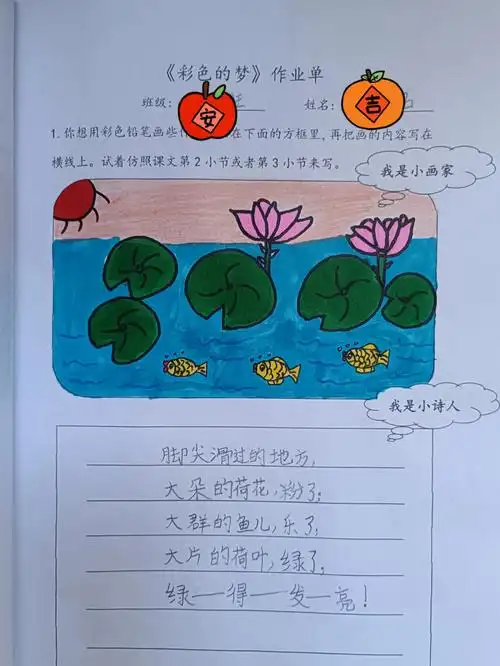 《彩色的梦》作业单
班级： 安 姓名： 吉
1.你想用彩色铅笔画些 在下面的方框里，再把画的内容写在
横线上。试着仿照课文第2小节或者第3小节来写。
我是小画家
我是小诗人
脚尖滑过的地方，
大朵的荷花，粉了；
大群的鱼儿，乐了；
大片的荷叶，绿了，
绿——得——发—亮！